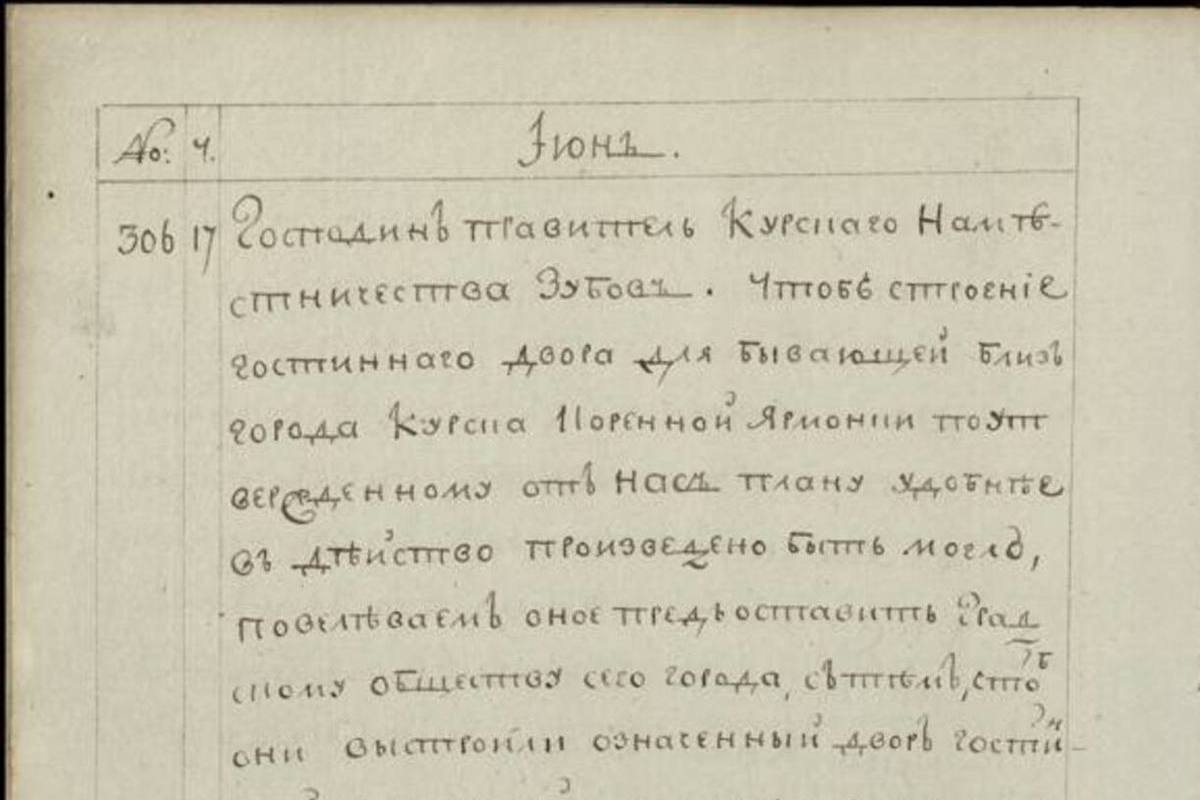 No: Ч. Іюнь.
306 17 Господинъ правитель Курскаго Намѣ-
стничества Зубовъ. Чтобъ строеніе
гостиннаго двора для бывающей близъ
города Курска Коренной Ярмонки по ут
вержденному отъ насъ плану удобнѣе
въ дѣйство произведено быть могло,
повелѣваемъ оное предъоставить Град
скому обществу сего города, съ тѣмъ, чтоб
они выстроили означенный дворъ гостин-